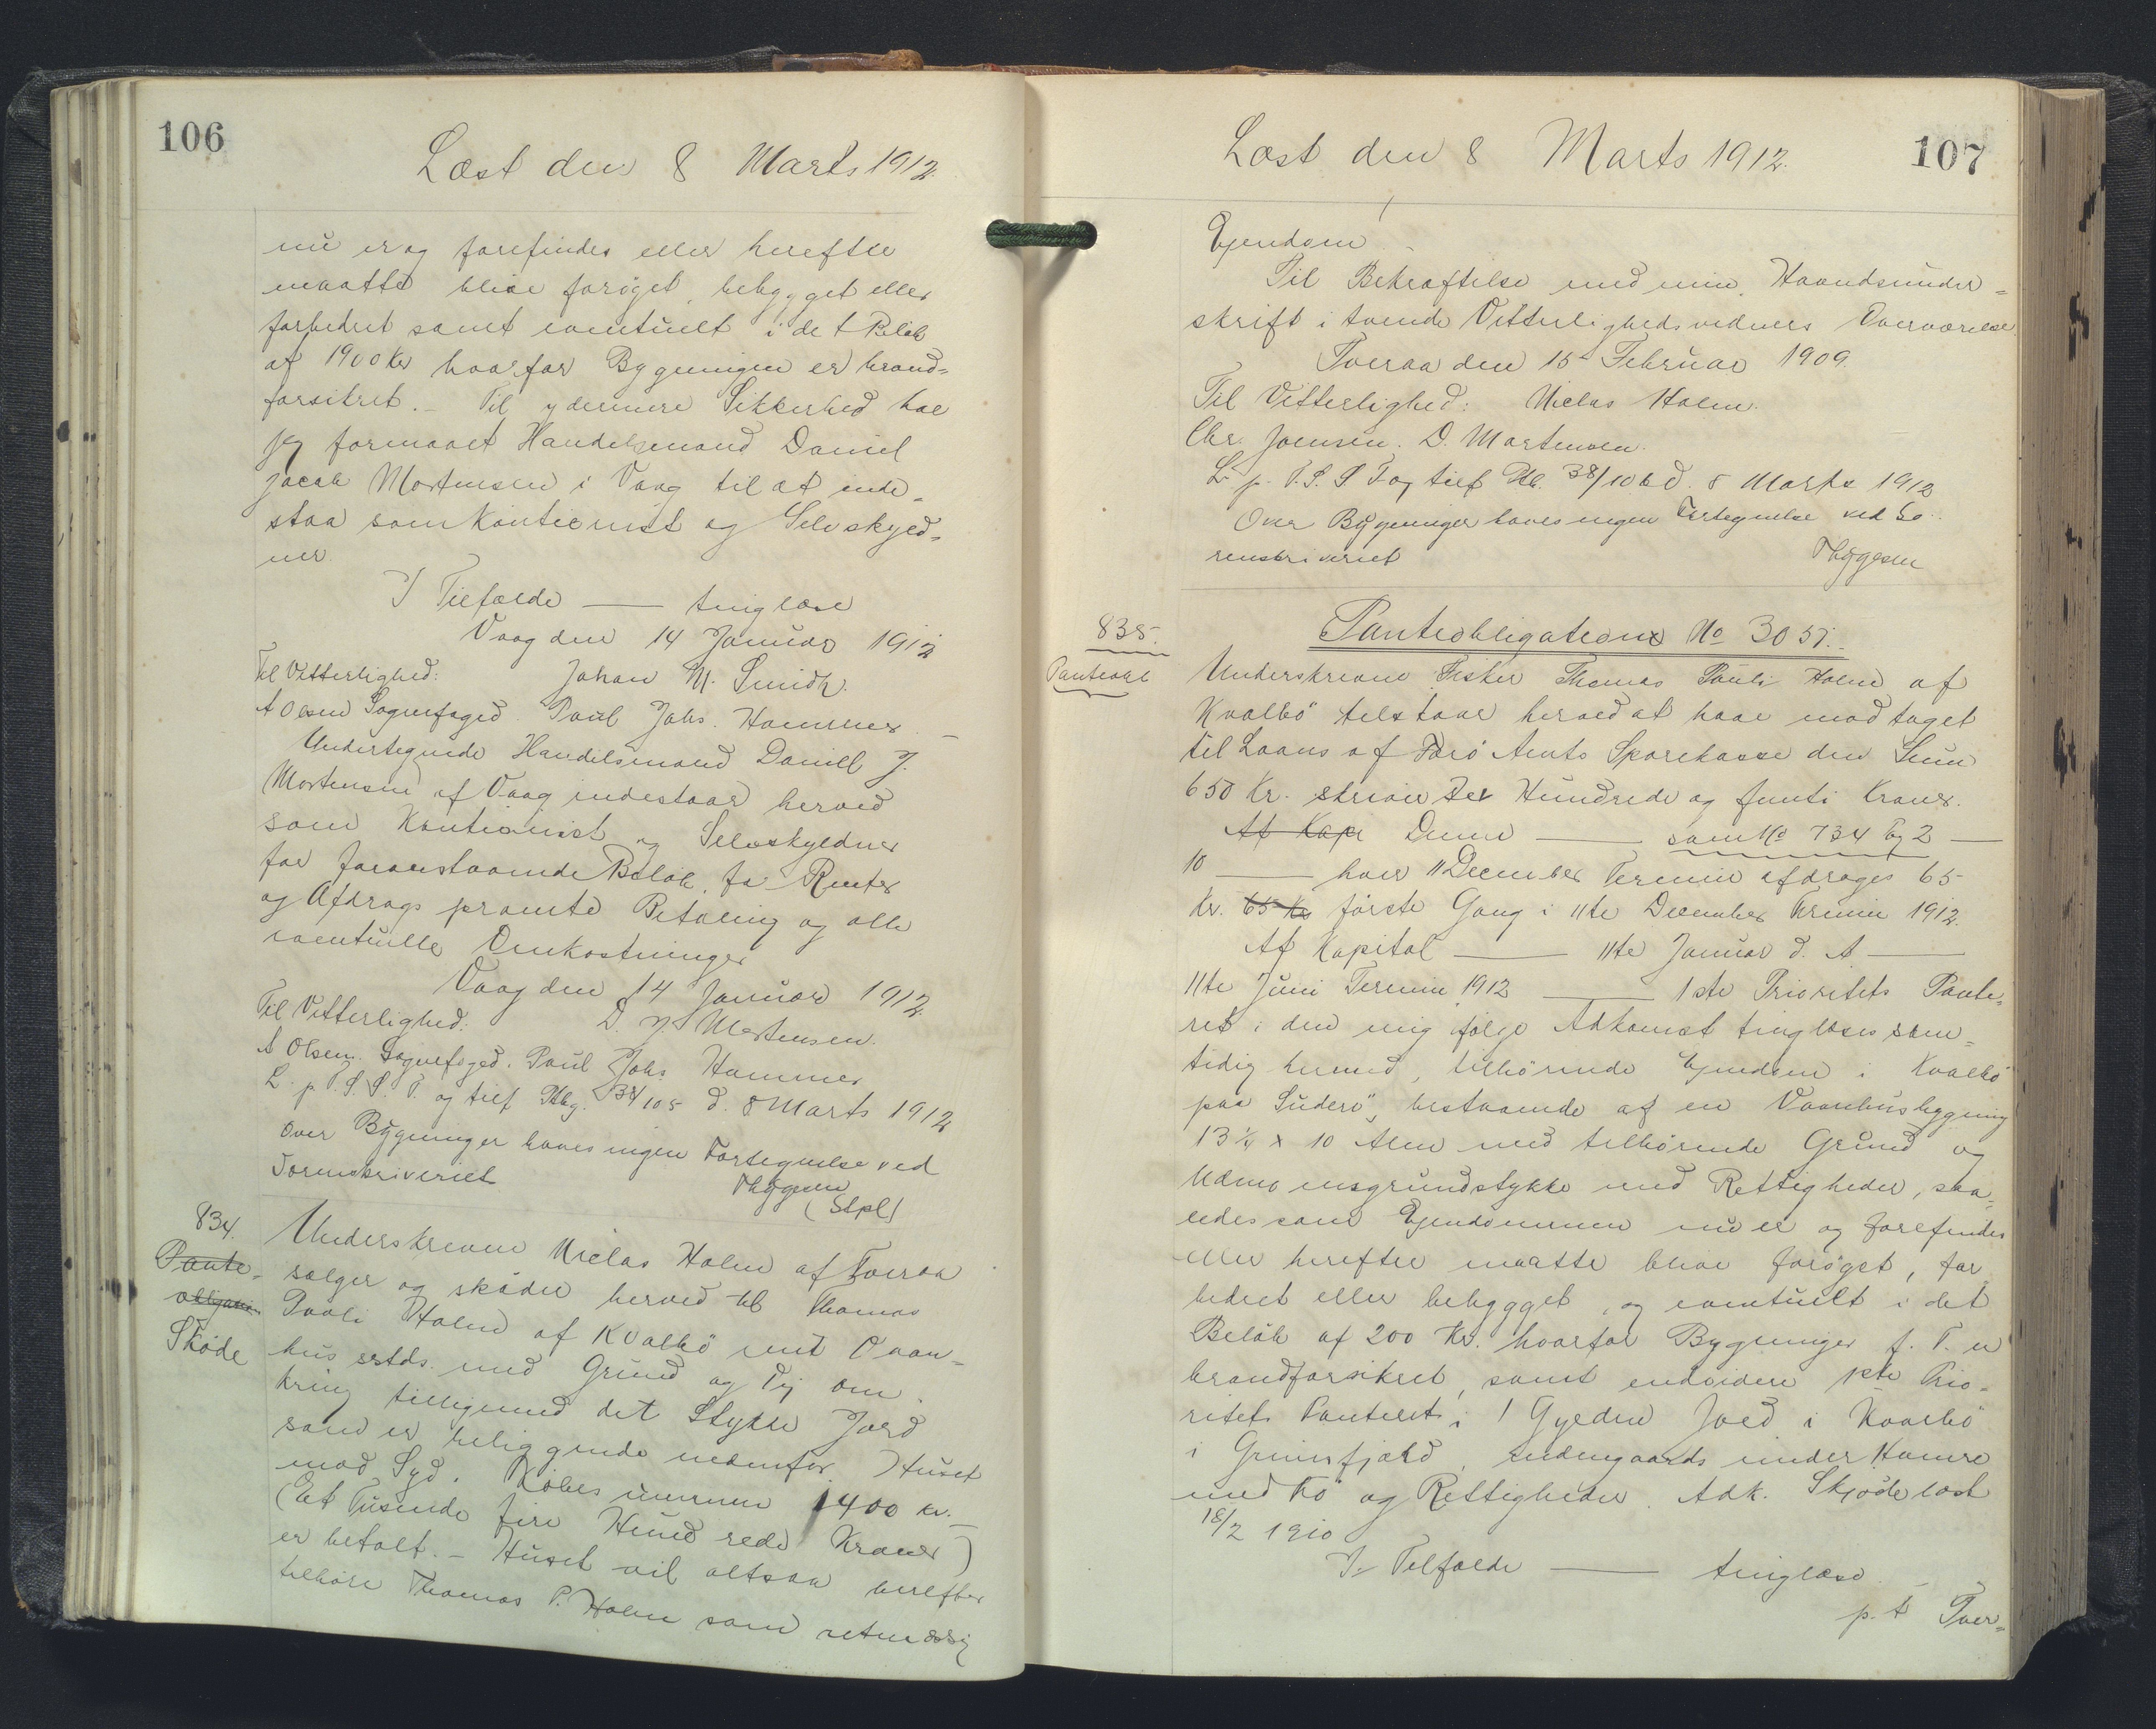 106
Læst den 8 Marts 1912.
nu er og forefindes eller herefter
maatte blive forøget, bebygget eller
forbedret samt eventuelt i det Beløb
af 1900 Kr hvorfor Bygningen er brand=
forsikret. – Til ydermere Sikkerhed har
jeg formaaet Handelsmand Daniel
Jacob Mortensen i Vaag til at inde=
staa som Kautionist og Selvskyld=
ner.
I Tilfælde —— tinglæse
Vaag den 14 Januar 1912
Til Vitterlighed: Johan M. Smidh.
A Olsen Sognefoged. Poul Johs. Hammer –
Undertegnede Handelsmand Daniel J.
Mortensen af Vaag indestaar herved
som Kautionist og Selvskyldner
for foranstaaende Beløb, for Renter
og Afdrags promte Betaling og alle
eventuelle Omkostninger
Vaag den 14 Januar 1912.
Til Vitterlighed: D. J. Mortensen.
A Olsen. Sognefoged. Poul Johs Hammer
L. p. T. S. S. T. og tilf Ptbg. 34/105 d. 8 Marts 1912
Over Bygninger haves ingen Fortegnelse ved
Sorenskriveriet
Thygesen
(Stpl)
834.
Pante=
obligation
Skøde
Underskrevne Niclas Holm af Tveraa
sælger og skøder herved til Thomas
Pauli Holm af Kvalbø mit Vaan=
hus sstds. med Grund og Vej om
kring tilligemed det Stykke Jord
som er beliggende nedenfor Huset
mod Syd. Købesummen 1400 Kr. –
(Et Tusinde fire Hundrede Kroner)
er betalt. – Huset vil altsaa herefter
tilhøre Thomas P. Holm som retmæssig
107
Læst den 8 Marts 1912.
Ejendom. –
Til Bekræftelse med min Haandsunder=
skrift i tvende Vitterlighedsvidners Overværelse
Tveraa den 15 Februar 1909.
Til Vitterlighed: Niclas Holm.
Chr. Joensen. D. Mortensen.
L. p. T. S. S T og tilf Ptb. 38/106 d. 8 Marts 1912
Over Bygninger haves ingen Fortegnelse ved So=
renskriveriet Thygesen
835.
Panteobl
Panteobligation No 3051.
Underskrevne Fisker Thomas Pauli Holm af
Kvalbø tilstaar herved at have modtaget
til Laans af Færø Amts Sparekasse den Sum
650 Kr. skriver Sex Hundrede og femti Kroner.
Af Kap Denne —— som No 734 Pg 2 —
10 —— hver 11 December Termin afdrages 65
Kr. 65 Kr første Gang i 11te December Termin 1912.
Af Kapital —— 11te Januar d. A. ——
11te Juni Termin 1912 —— 1ste Prioritets Pante=
ret i den mig ifølge Adkomst tinglæses sam=
tidig hermed, tilhørende Ejendom i Kvalbø
paa Suderø, bestaaende af en Vaanhusbygning
13¼ x 10 Alen med tilhørende Grund og
Udmarksgrundstykke med Rettigheder, saa=
ledes som Ejendommen nu er og forefindes
eller herefter maatte blive forøget, for
bedret eller bebygget, og eventuelt i det
Beløb af 200 Kr. hvorfor Bygninger f. T. er
brandforsikret, samt endvidere 1ste Prio=
ritets Panteret i 1 Gylden Jord i Kvalbø
i Grimsfjord, sudengaards under Hamre
med Fø og Rettigheder. Adk. Skjøde læst
18/2 1910
I Tilfælde —— tinglæse. –
p. t Tver=